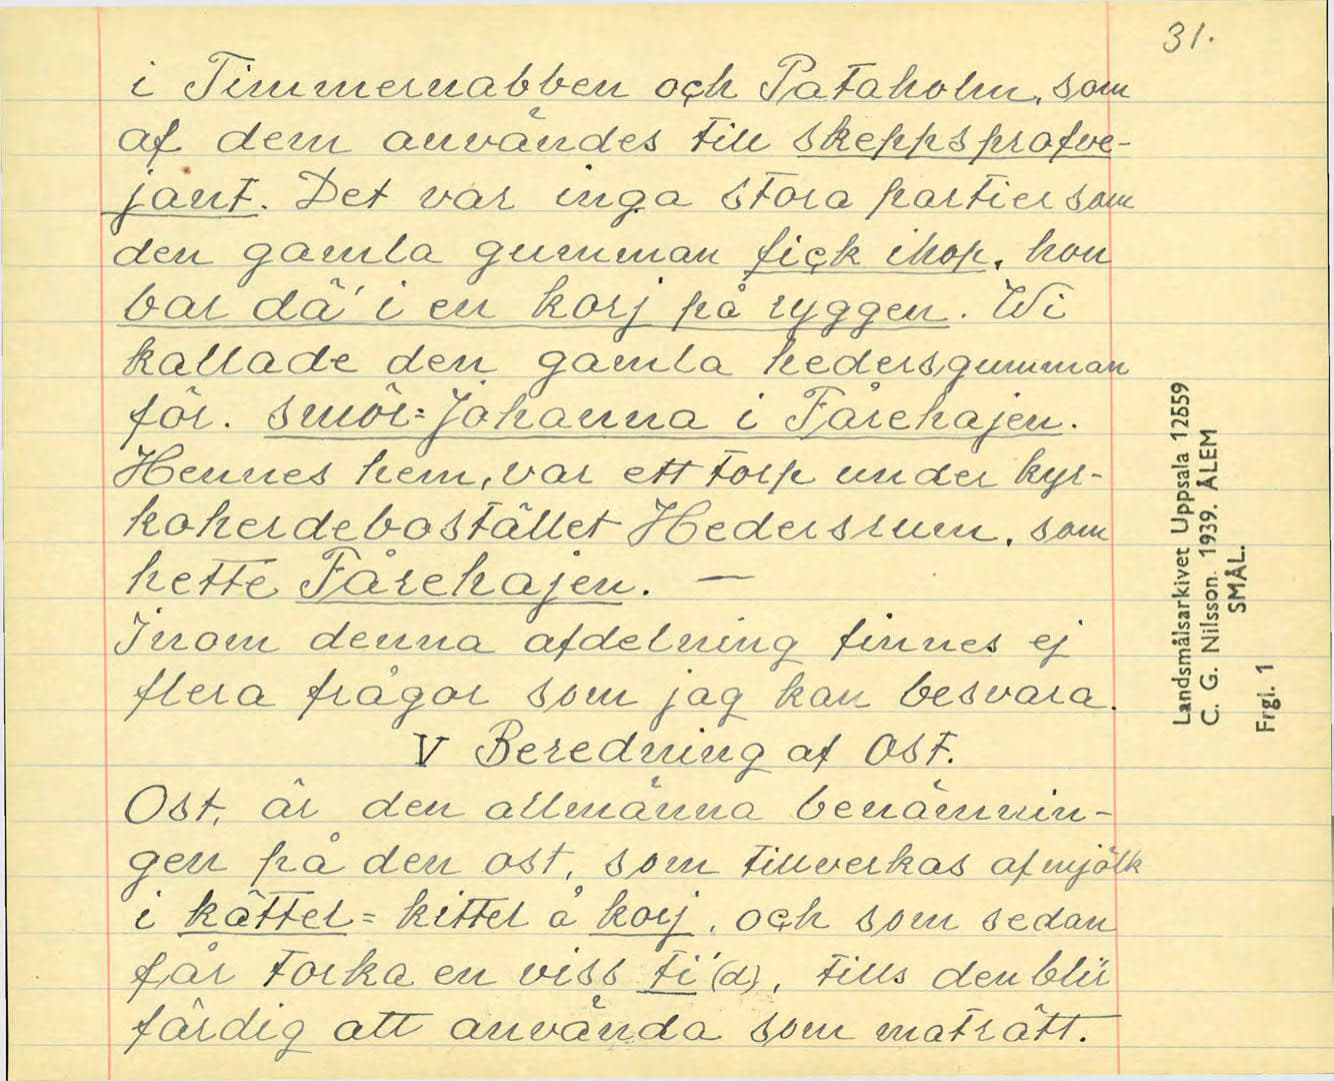 31.
i Timmernabben och Pataholm, som
af dem användes till skeppsprofve-
jant. Det var inga stora partier som
den gamla gumman fick ihop, hon
bar dä' i en korj på ryggen. Wi
kallade den gamla hedersgumman
för. smör=Johanna i Fårehajen.
Hennes hem, var ett torp under kyr-
koherdebostället Hedersrum, som
hette Fårehajen. —
Inom denna afdelning finnes ej
flera frågor som jag kan besvara.
V Beredning af Ost.
Ost, är den allmänna benämnin-
gen på den ost, som tillverkas af mjölk
i kättel = kittel å korj, och som sedan
får torka en viss ti' (d), tills den blir
färdig att använda som maträtt.
Landsmålsarkivet Uppsala 12559
C. G. Nilsson. 1939. ÅLEM
SMÅL.
Frgl. 1